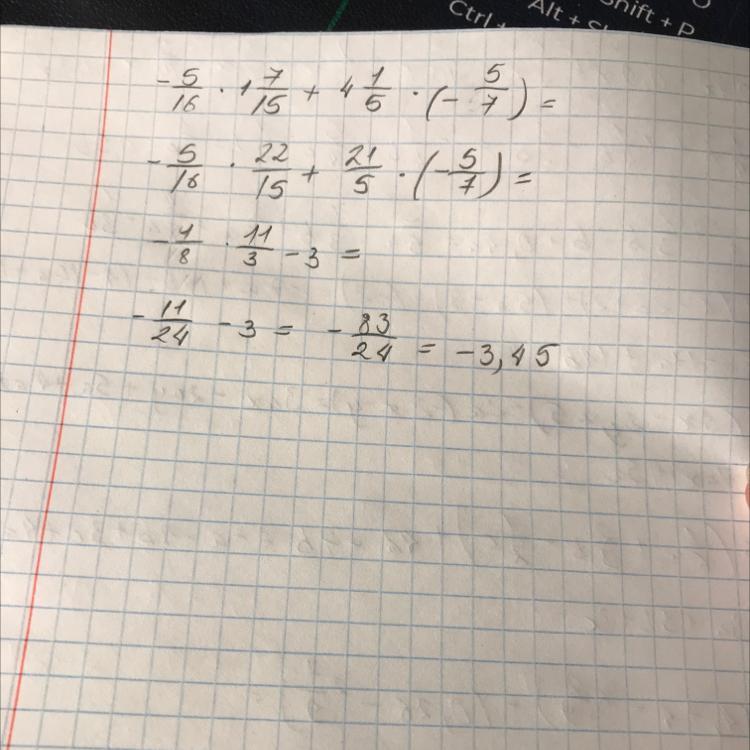 Ctrl + Alt + Shift + P
-5/16 · 1 7/15 + 4 1/5 · (- 5/7) =
-5/16 · 22/15 + 21/5 · (-5/7) =
-1/8 · 11/3 - 3 =
-11/24 - 3 = -83/24 = -3,45